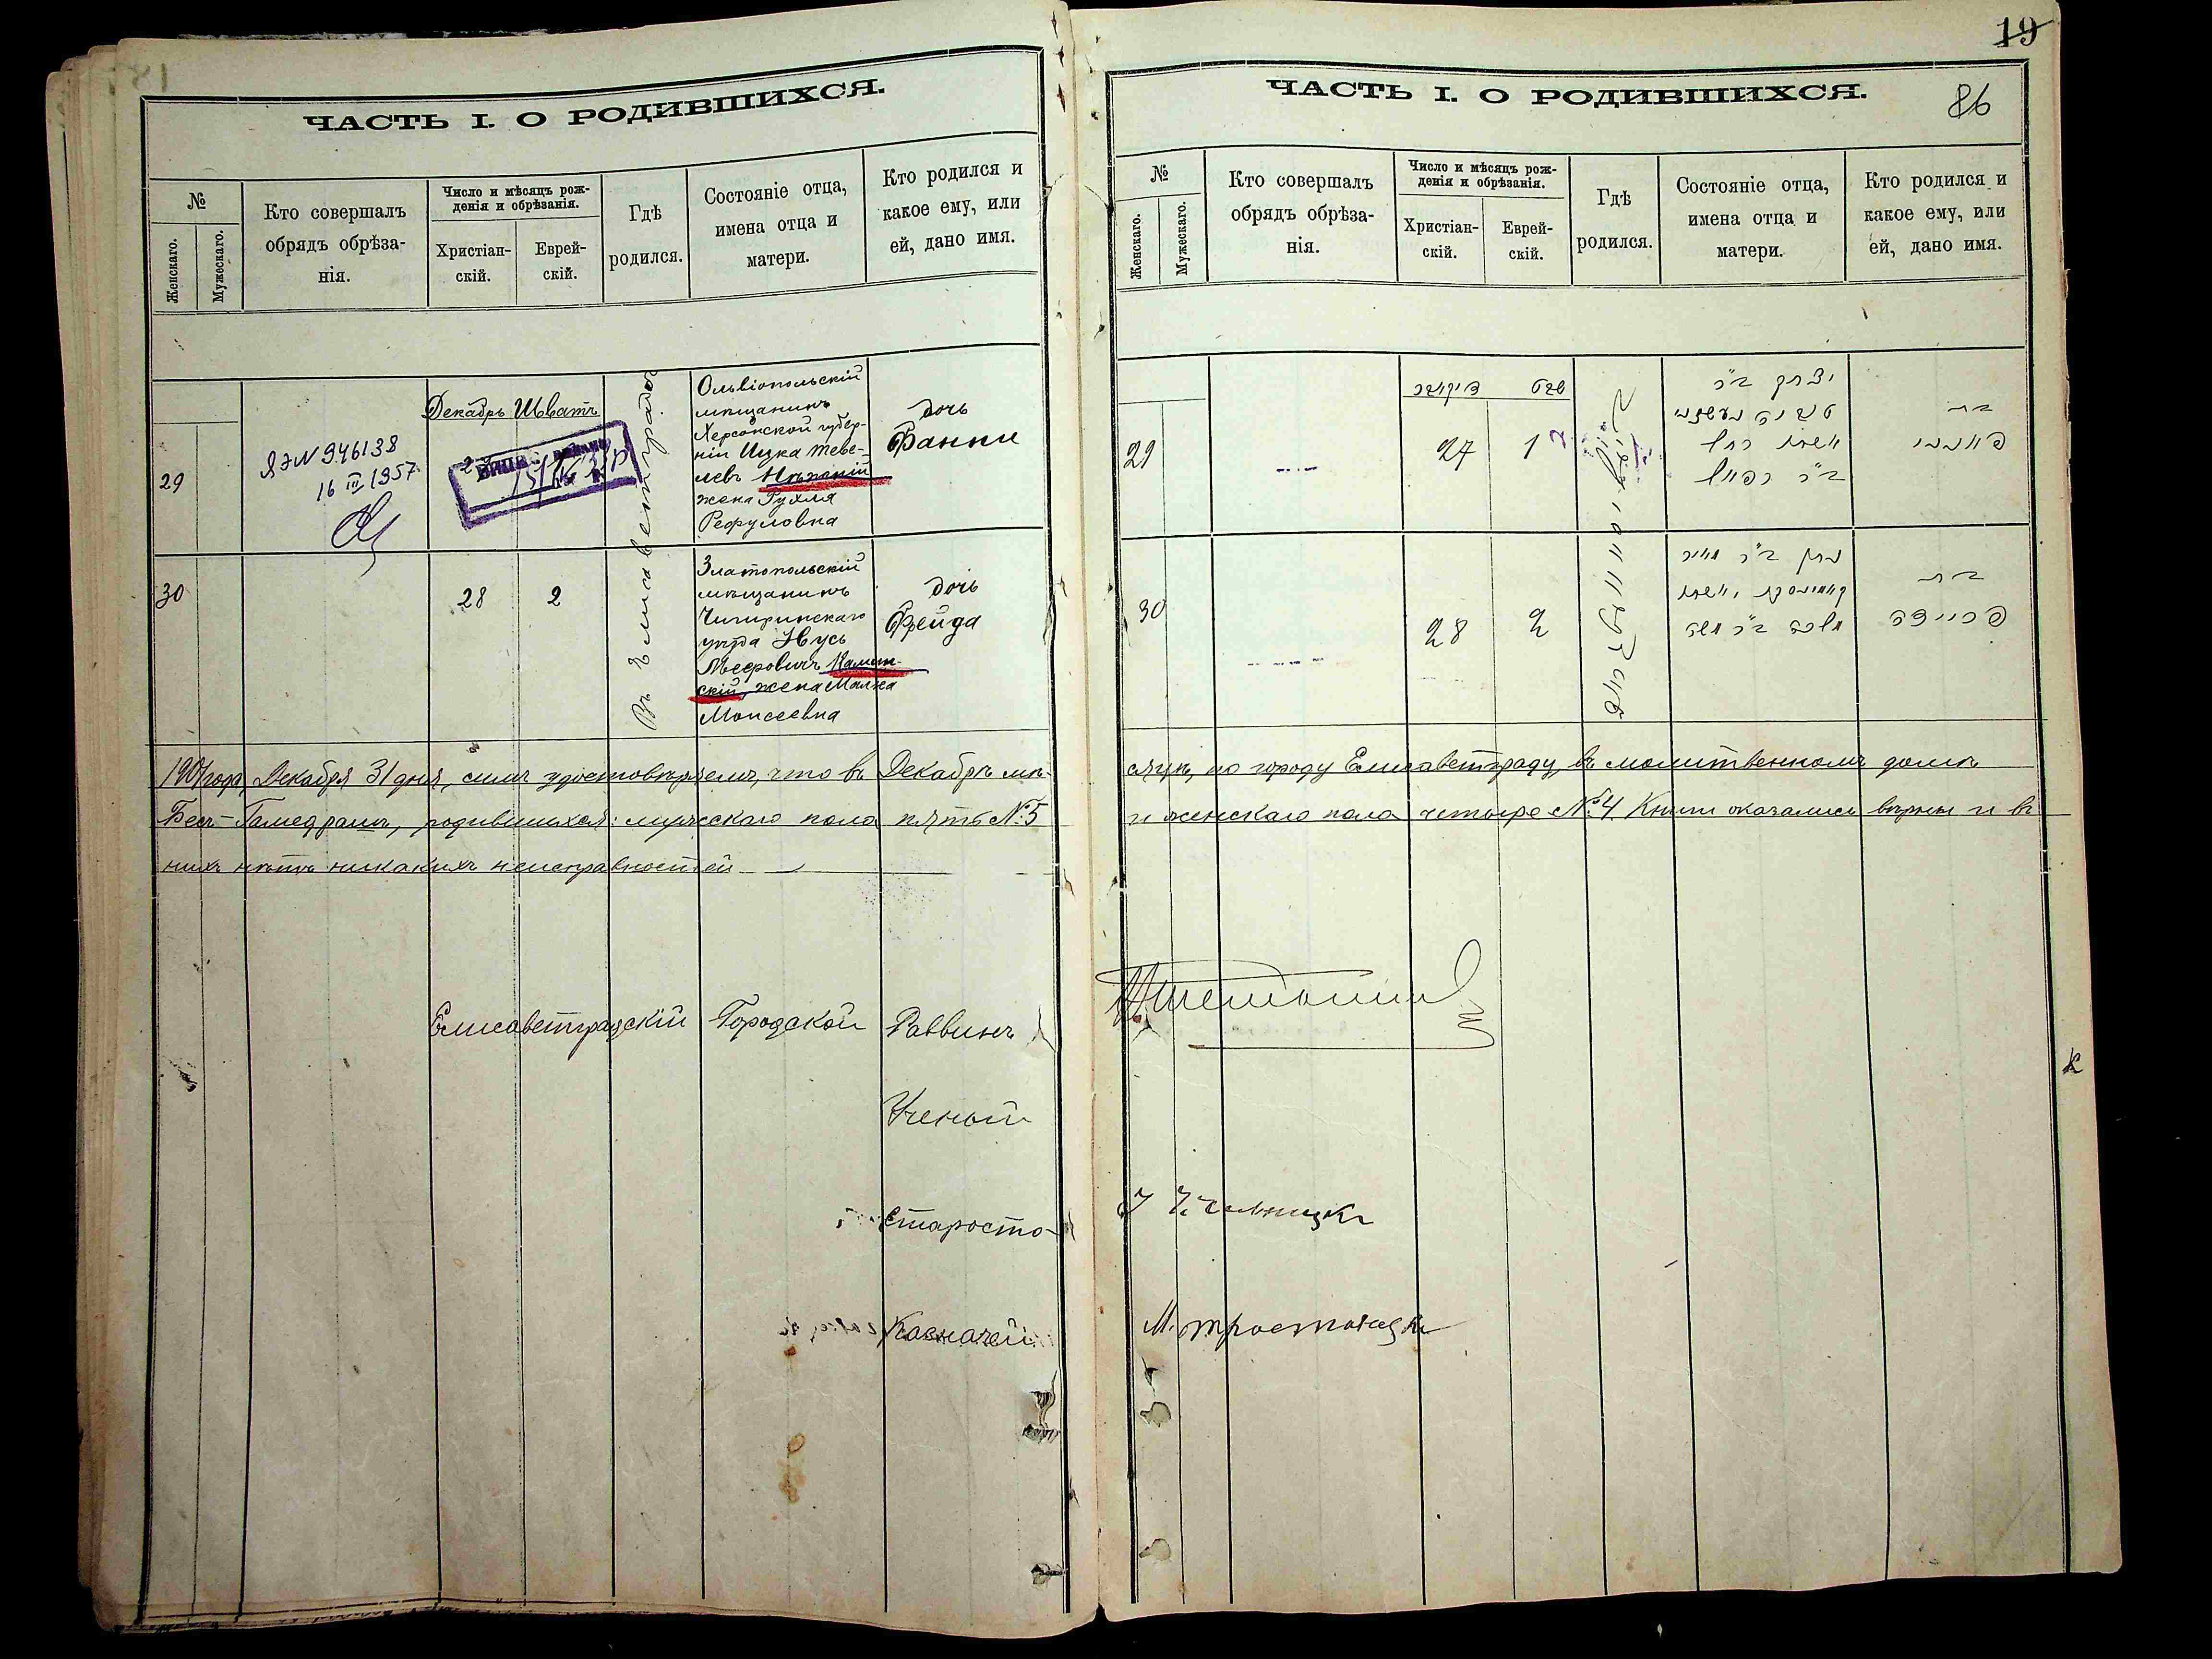 19
86
ЧАСТЬ I. О РОДИВШИХСЯ.
№
Женскаго.
Мужескаго.
Кто совершалъ
обрядъ обрѣза-
нія.
Число и мѣсяцъ рож-
денія и обрѣзанія.
Христіан-
скій.
Еврей-
скій.
Гдѣ
родился.
Состояніе отца,
имена отца и
матери.
Кто родился и
какое ему, или
ей, дано имя.
29
ЯЭ № 946138
16 III 1957
Декабрь Шватъ
Въ Елисаветградѣ
Ольвіопольскій
мѣщанинъ
Херсонской губер-
ніи Ицка Теве-
левъ
жена Рухля
Рефуловна
дочь
Фанни
30
28
2
Златопольскій
мѣщанинъ
Чигиринскаго
уѣзда Нусь
Меерович Камин-
скій, жена Малка
Моисеевна
дочь
Фрейда
1904 года, Декабря 31 дня, симъ удостовѣряемъ, что въ Декабрѣ мѣ-
Бесъ-Гамедрашъ, родившихся: мужескаго пола пять №5
нихъ нѣтъ никакихъ неисправностей
Елисаветградскій Городской Раввинъ
Ученый
Староста
Казначей
ЧАСТЬ I. О РОДИВШИХСЯ.
№
Женскаго.
Мужескаго.
Кто совершалъ
обрядъ обрѣза-
нія.
Число и мѣсяцъ рож-
денія и обрѣзанія.
Христіан-
скій.
Еврей-
скій.
Гдѣ
родился.
Состояніе отца,
имена отца и
матери.
Кто родился и
какое ему, или
ей, дано имя.
שבט
29
27
1
יצחק ב"ר
רחל
ב"ר רפאל
בת
פאנני
30
28
2
נתן ב"ר מאיר
מלכה ב"ר משה
בת
פריידה
сяцѣ, по городу Елисаветграду, въ молитвенномъ домѣ
и женскаго пола четыре №4. Книги оказались вѣрны и въ